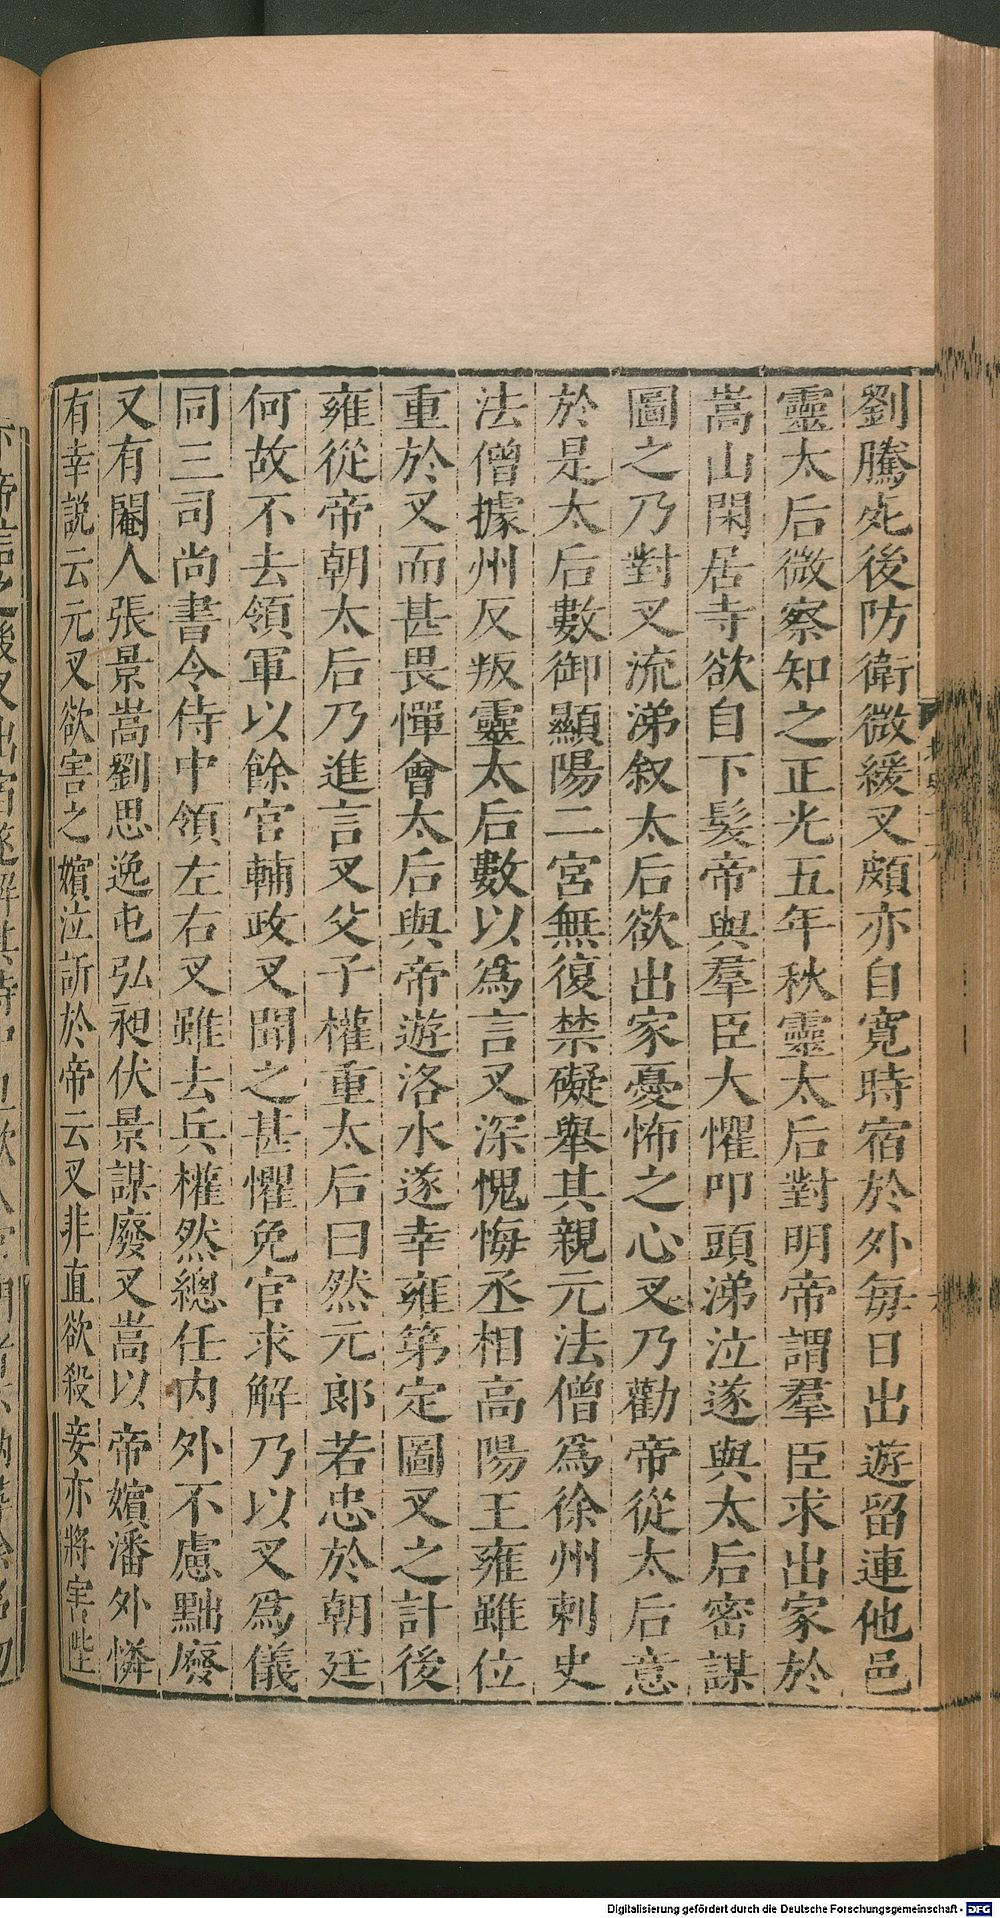 劉騰死後防衛微緩叉頗亦自寬時宿於外每日出遊留連他邑
靈太后微察知之正光五年秋靈太后對明帝謂羣臣求出家於
嵩山閑居寺欲自下髮帝與羣臣大懼叩頭涕泣遂與太后密謀
圖之乃對叉流涕叙太后欲出家憂怖之心叉乃勸帝從太后意
於是太后數御顯陽二宮無復禁礙舉其親元法僧爲徐州刺史
法僧據州反叛靈太后數以爲言叉深愧悔丞相高陽王雍雖位
重於叉而甚畏憚會太后與帝遊洛水遂幸雍第定圖叉之計後
雍從帝朝太后乃進言叉父子權重太后曰然元郎若忠於朝廷
何故不去領軍以餘官輔政叉聞之甚懼免官求解乃以叉爲儀
同三司尚書令侍中領左右叉雖去兵權然總任内外不慮黜廢
又有閹人張景嵩劉思逸屯弘昶伏景謀廢叉嵩以帝嬪潘外憐
有幸説云元叉欲害之嬪泣訴於帝云叉非直欲殺妾亦將害陛
Digitalisierung gefördert durch die Deutsche Forschungsgemeinschaft - DFG